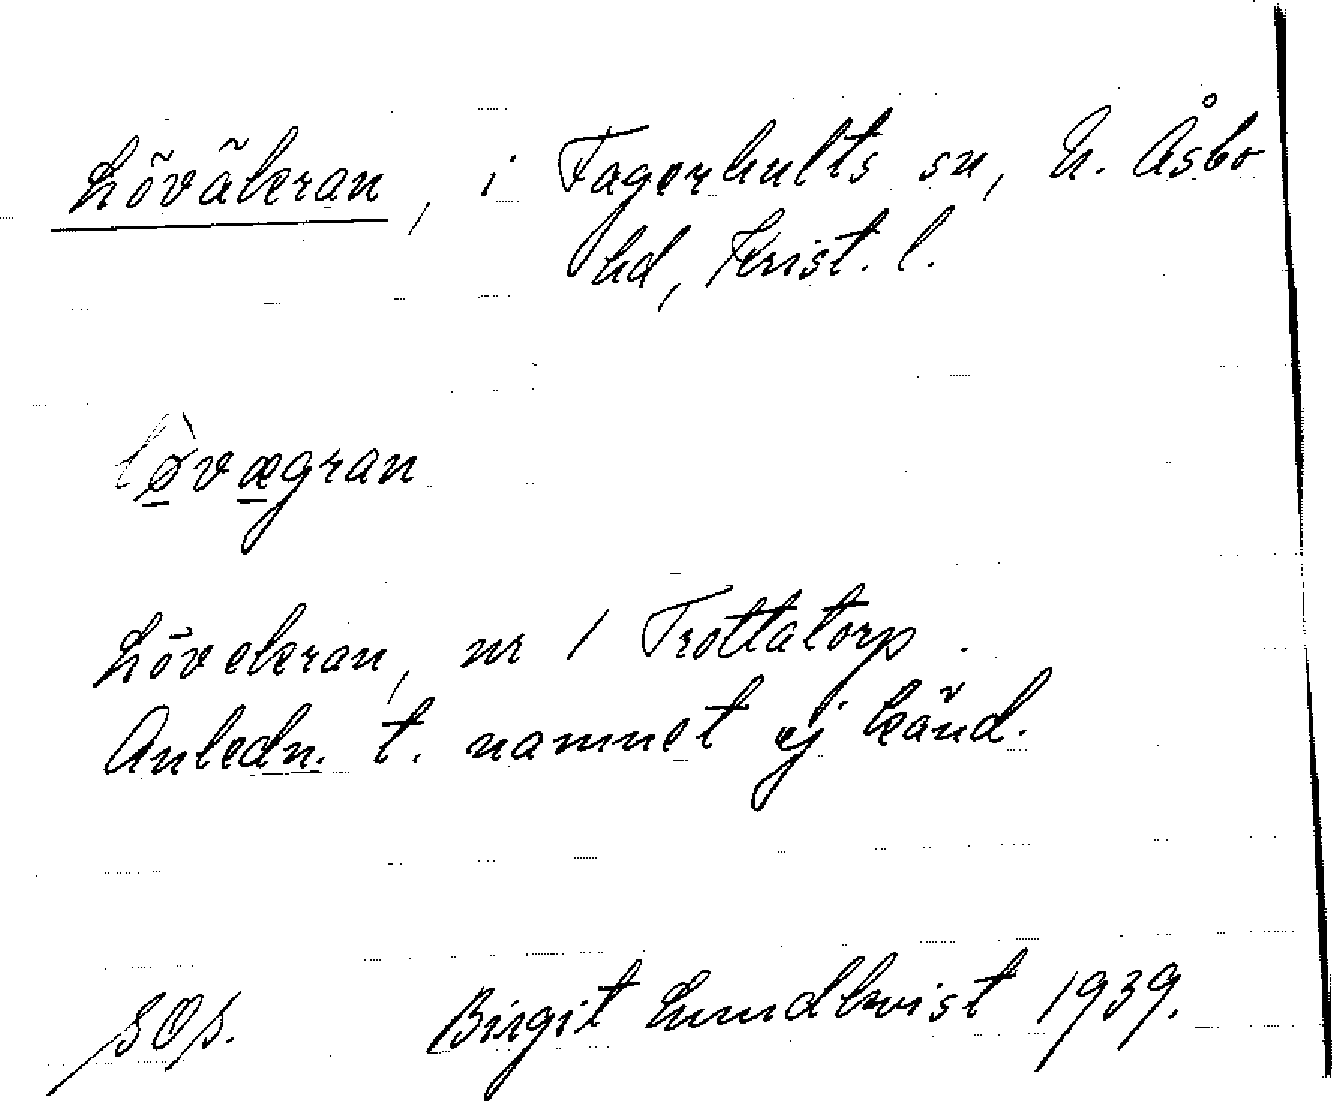 Löväkran, i Fagerhults sn, N. Åsbo
hd, Krist. l.
lø̱̀væ̱gran
Lövekran, nr 1 Trottatorp.
Anledn. t. namnet ej känd.
sOs. Birgit Lundkvist 1939.